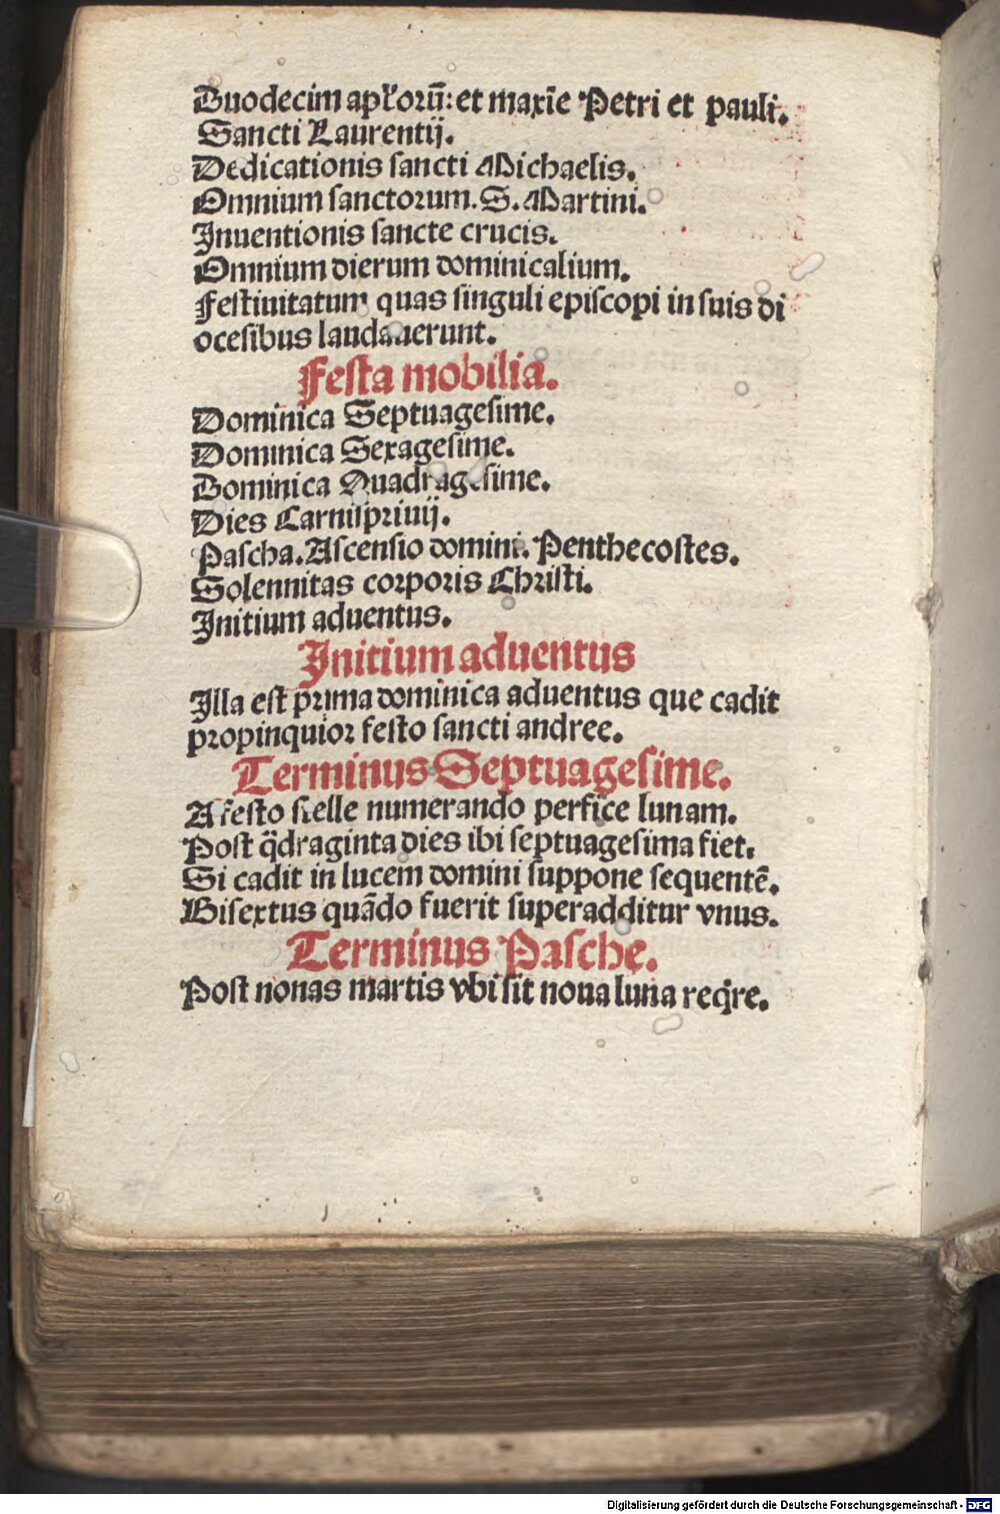 Duodecim apl'oꝝ̄: et maxīe Petri et pauli.
Sancti Laurentij.
Dedicationis sancti Michaelis.
Omnium sanctorum. S. Martini.
Inuentionis sancte crucis.
Omnium dierum dominicalium.
Festiuitatum quas singuli episcopi in suis di
ocesibus laudauerunt.
Festa mobilia.
Dominica Septuagesime.
Dominica Sexagesime.
Dominica Quadragesime.
Dies Carnispriuij.
Pascha. Ascensio domini. Penthecostes.
Solennitas corporis Christi.
Initium aduentus.
Initium aduentus
Illa est prima dominica aduentus que cadit
propinquior festo sancti andree.
Terminus Septuagesime.
A festo stelle numerando perfice lunam.
Post q̄draginta dies ibi septuagesima fiet.
Si cadit in lucem domini suppone sequentē.
Bisextus quādo fuerit superadditur vnus.
Terminus Pasche.
Post nonas martis vbi sit noua luna reqͥre.
Digitalisierung gefördert durch die Deutsche Forschungsgemeinschaft - DFG